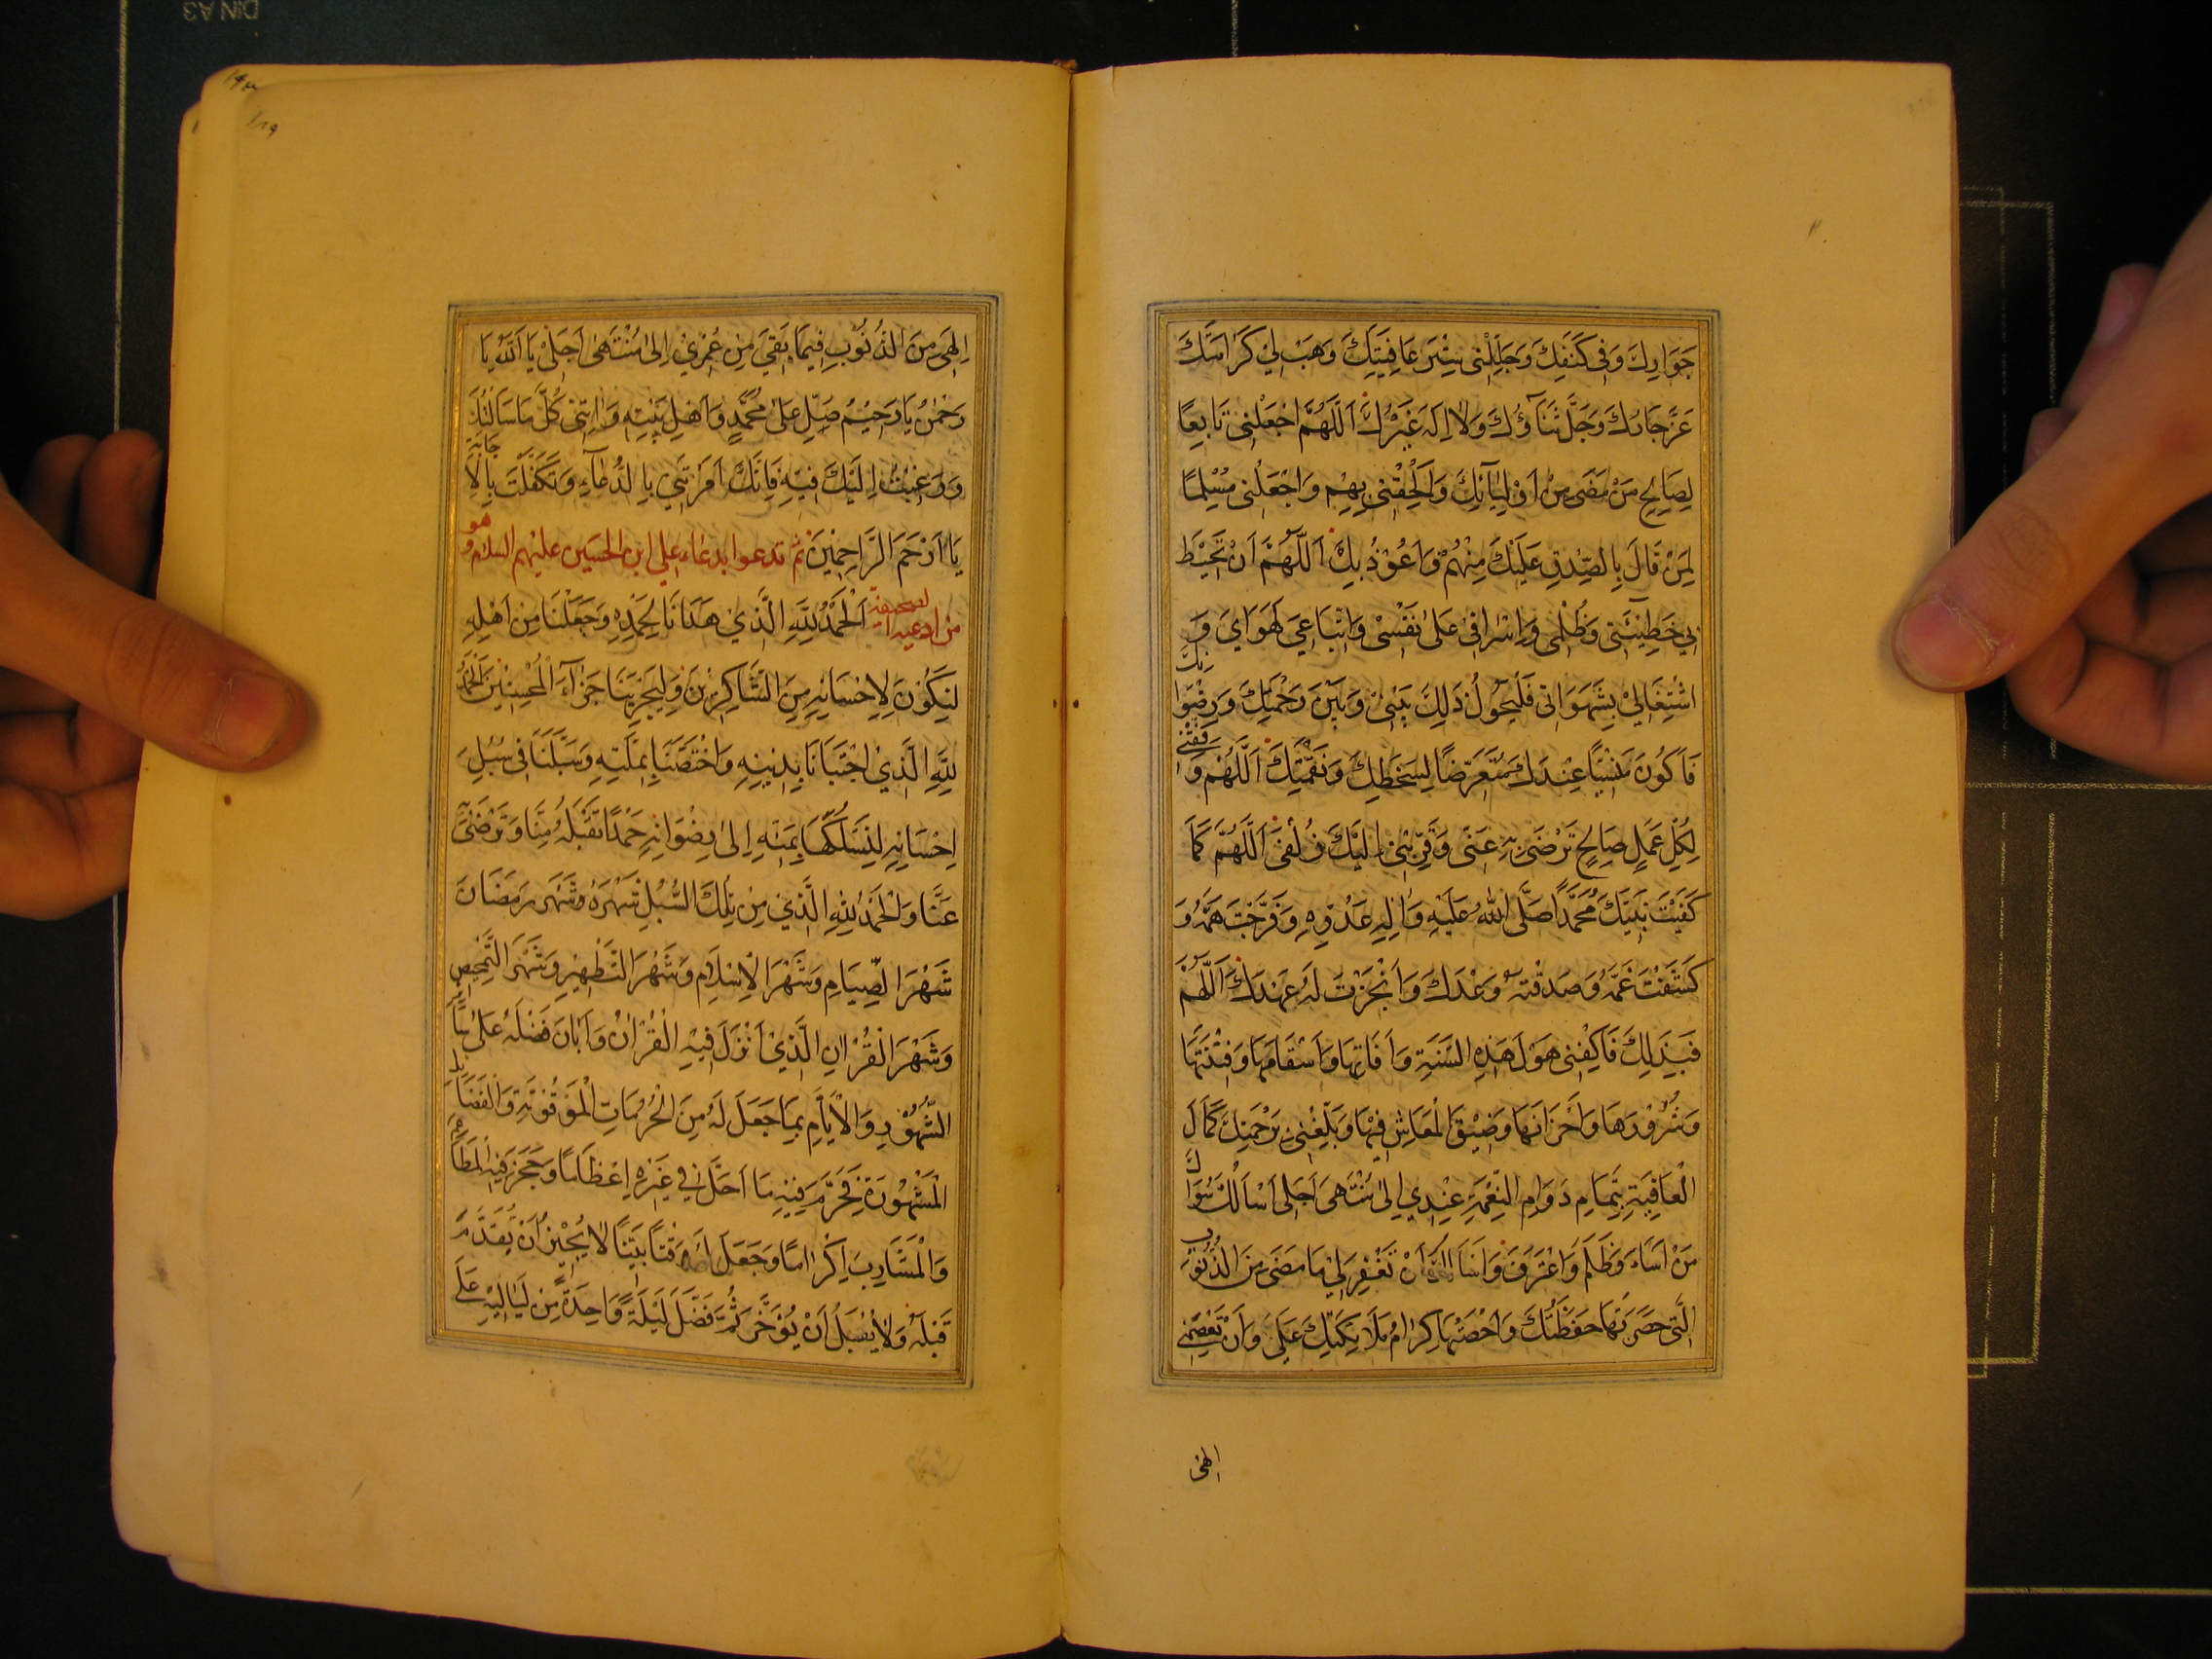 جَوَارِكَ وَفِي كَنَفِكَ وَجَلِّلْنِي سِتْرَ عَافِيَتِكَ وَهَبْ لِي كَرَامَتَكَ
عَزَّ جَارُكَ وَجَلَّ ثَنَاؤُكَ وَلَا اِلَهَ غَيْرُكَ اَللَّهُمَّ اجْعَلْنِي تَابِعًا
لِصَالِحِ مَنْ مَضَى مِنْ اَوْلِيَآئِكَ وَاَلْحِقْنِي بِهِمْ وَاجْعَلْنِي مُسْلِمًا
لِمَنْ قَالَ بِالصِّدْقِ عَلَيْكَ مِنْهُمْ وَاَعُوْذُ بِكَ اَللَّهُمَّ اَنْ تُحِيْطَ
بِي خَطِيْئَتِي وَظُلْمِي وَاِسْرَافِي عَلَى نَفْسِي وَاتِّبَاعِي لِهَوَايَ وَ
اشْتِغَالِي بِشَهَوَاتِي فَيَحُوْلُ ذَلِكَ بَيْنِي وَبَيْنَ رَحْمَتِكَ وَرِضْوَانِكَ
فَاَكُوْنَ مَنْسِيًّا عِنْدَكَ مُتَعَرِّضًا لِسَخَطِكَ وَنَقِمَتِكَ اَللَّهُمَّ وَفِّقْنِي
لِكُلِّ عَمَلٍ صَالِحٍ تَرْضَى بِهِ عَنِّي وَقَرِّبْنِي اِلَيْكَ زُلْفَى اَللَّهُمَّ كَمَا
كَفَيْتَ نَبِيَّكَ مُحَمَّدًا صَلَّى اللهُ عَلَيْهِ وَاٰلِهِ عَدُوِّهِ وَفَرَّجْتَ هَمَّهُ وَ
كَشَفْتَ غَمَّهُ وَصَدَقْتَهُ وَعْدَكَ وَاَنْجَزْتَ لَهُ عَهْدَكَ اَللَّهُمَّ
فَبِذَلِكَ فَاكْفِنِي هَوْلَ هَذِهِ السَّنَةِ وَاٰفَاتِهَا وَاَسْقَامَهَا وَفِتْنَتَهَا
وَشُرُوْرَهَا وَاَحْزَانَهَا وَضِيْقَ الْمَعَاشِ فِيْهَا وَبَلِّغْنِي بِرَحْمَتِكَ كَمَالَ
الْعَافِيَةِ بِتَمَامِ دَوَامِ النِّعْمَةِ عِنْدِي اِلَى مُنْتَهَى اَجَلِي اَسْاَلُكَ سُؤَالَ
مَنْ اَسَاءَ وَظَلَمَ وَاعْتَرَفَ وَاَسْاَلُكَ اَنْ تَغْفِرَ لِي مَا مَضَى مِنَ الذُّنُوْبِ
الَّتِي حَصَرَتْهَا حَفَظَتُكَ وَاَحْصَتْهَا كِرَامُ مَلَائِكَتِكَ عَلَيَّ وَاَنْ تَعْصِمَنِي
اِلٰهِي
اِلٰهِي مِنَ الذُّنُوْبِ فِيْمَا بَقِيَ مِنْ عُمْرِيْ اِلَى مُنْتَهَى اَجَلِيْ يَا اَللهُ يَا
رَحْمٰنُ يَا رَحِيْمُ صَلِّ عَلَى مُحَمَّدٍ وَاَهْلِ بَيْتِهِ وَاٰتِنِي كُلَّ مَا سَاَلْتُكَ
وَرَغِبْتُ اِلَيْكَ فِيْهِ فَاِنَّكَ اَمَرْتَنِي بِالدُّعَآءِ وَتَكَفَّلْتَ بِالْاِجَابَةِ
يَا اَرْحَمَ الرَّاحِمِيْنَ ثم تدعوا بدعاء علي ابن الحسين عليهم السلام وهو
من ادعية الصحيفة اَلْحَمْدُ لِلّٰهِ الَّذِي هَدَانَا لِحَمْدِهِ وَجَعَلَنَا مِنْ اَهْلِهِ
لِنَكُوْنَ لِاِحْسَانِهِ مِنَ الشَّاكِرِيْنَ وَلِيَجْزِيَنَا جَزَآءَ الْمُحْسِنِيْنَ اَلْحَمْدُ
لِلّٰهِ الَّذِيْ اجْتَبَانَا بِدِيْنِهِ وَاخْتَصَّنَا بِمِلَّتِهِ وَسَبَّلَنَا فِي سُبُلِ
اِحْسَانِهِ لِنَسْلُكَهَا بِمَنِّهِ اِلَى رِضْوَانِهِ حَمْدًا تَقَبَّلَهُ مِنَّا وَتَرْضَى
عَنَّا وَالْحَمْدُ لِلّٰهِ الَّذِيْ مِنْ تِلْكَ السُّبُلِ شَهْرَهُ شَهْرَ رَمَضَانَ
شَهْرَ الصِّيَامِ وَشَهْرَ الْاِسْلَامِ وَشَهْرَ التَّطْهِيْرِ وَشَهْرَ التَّمْحِيْصِ
وَشَهْرَ الْقُرْاٰنِ الَّذِيْ اُنْزِلَ فِيْهِ الْقُرْاٰنُ وَاَبَانَ فَضْلَهُ عَلَى سَائِرِ
الشُّهُوْرِ وَالْاَيَّامِ بِمَا جَعَلَ لَهُ مِنَ الْحُرُمَاتِ الْمَوْفُوْرَةِ وَالْفَضَائِلِ
الْمَشْهُوْرَةِ فَحَرَّمَ فِيْهِ مَا اَحَلَّ فِي غَيْرِهِ اِعْظَامًا وَحَجَرَ فِيْهِ الْمَطَاعِمَ
وَالْمَشَارِبَ اِكْرَامًا وَجَعَلَ لَهُ وَقْتًا بَيِّنًا لَا يُجِيْزُ اَنْ يُقَدَّمَ
قَبْلَهُ وَلَا يَقْبَلُ اَنْ يُؤَخَّرَ ثُمَّ فَضَّلَ لَيْلَةً وَاحِدَةً مِنْ لَيَالِيْهِ عَلَى